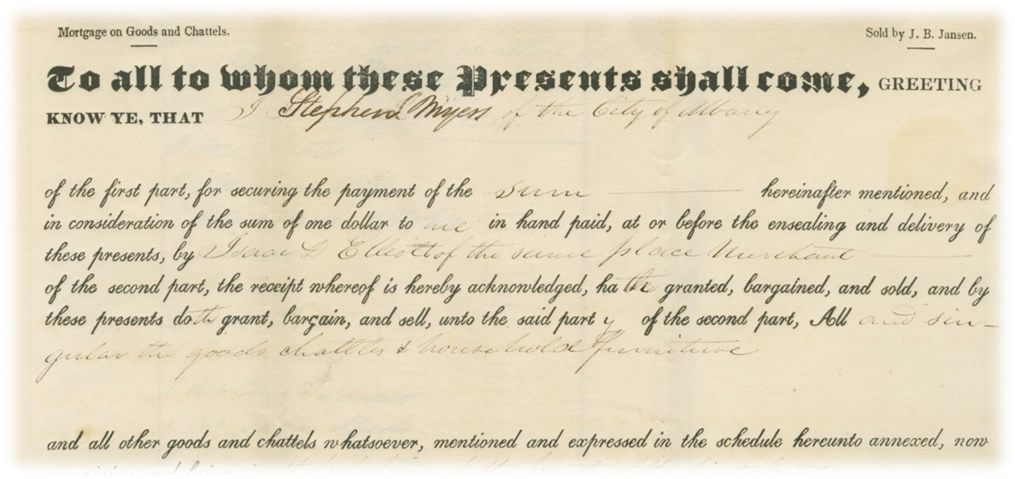 Mortgage on Goods and Chattels. Sold by J. B. Jansen.
To all to whom these Presents shall come, GREETING
KNOW YE, THAT I Stephen Myers of the City of Albany
of the first part, for securing the payment of the sum hereinafter mentioned, and
in consideration of the sum of one dollar to me in hand paid, at or before the ensealing and delivery of
these presents, by Isaac D Elliott of the same place Merchant
of the second part, the receipt whereof is hereby acknowledged, hath granted, bargained, and sold, and by
these presents doth grant, bargain, and sell, unto the said party of the second part, All and sin-
gular the goods chattles & household furniture
and all other goods and chattels whatsoever, mentioned and expressed in the schedule hereunto annexed, now